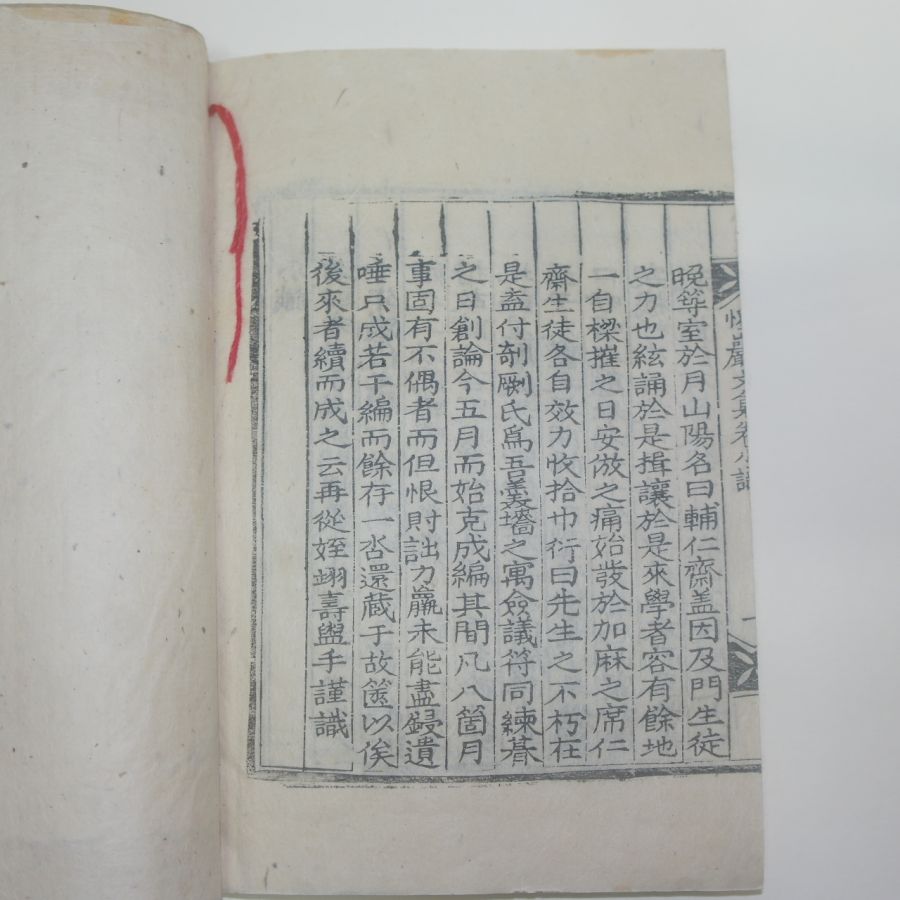 晩築室於月山陽名曰輔仁齋盖因及門生徒
之力也絃誦於是揖讓於是來學者容有餘地
一自樑摧之日安倣之痛始發於加麻之席仁
齋生徒各自效力收拾巾衍曰先生之不朽在
是盍付剞劂氏爲吾羹墻之寓僉議符同練朞
之日創論今五月而始克成編其間凡八箇月
事固有不偶者而但恨財詘力羸未能盡鋟遺
唾只成若干編而餘存一呇還蔵于故篋以俟
後來者續而成之云再從姪翊壽盥手謹識